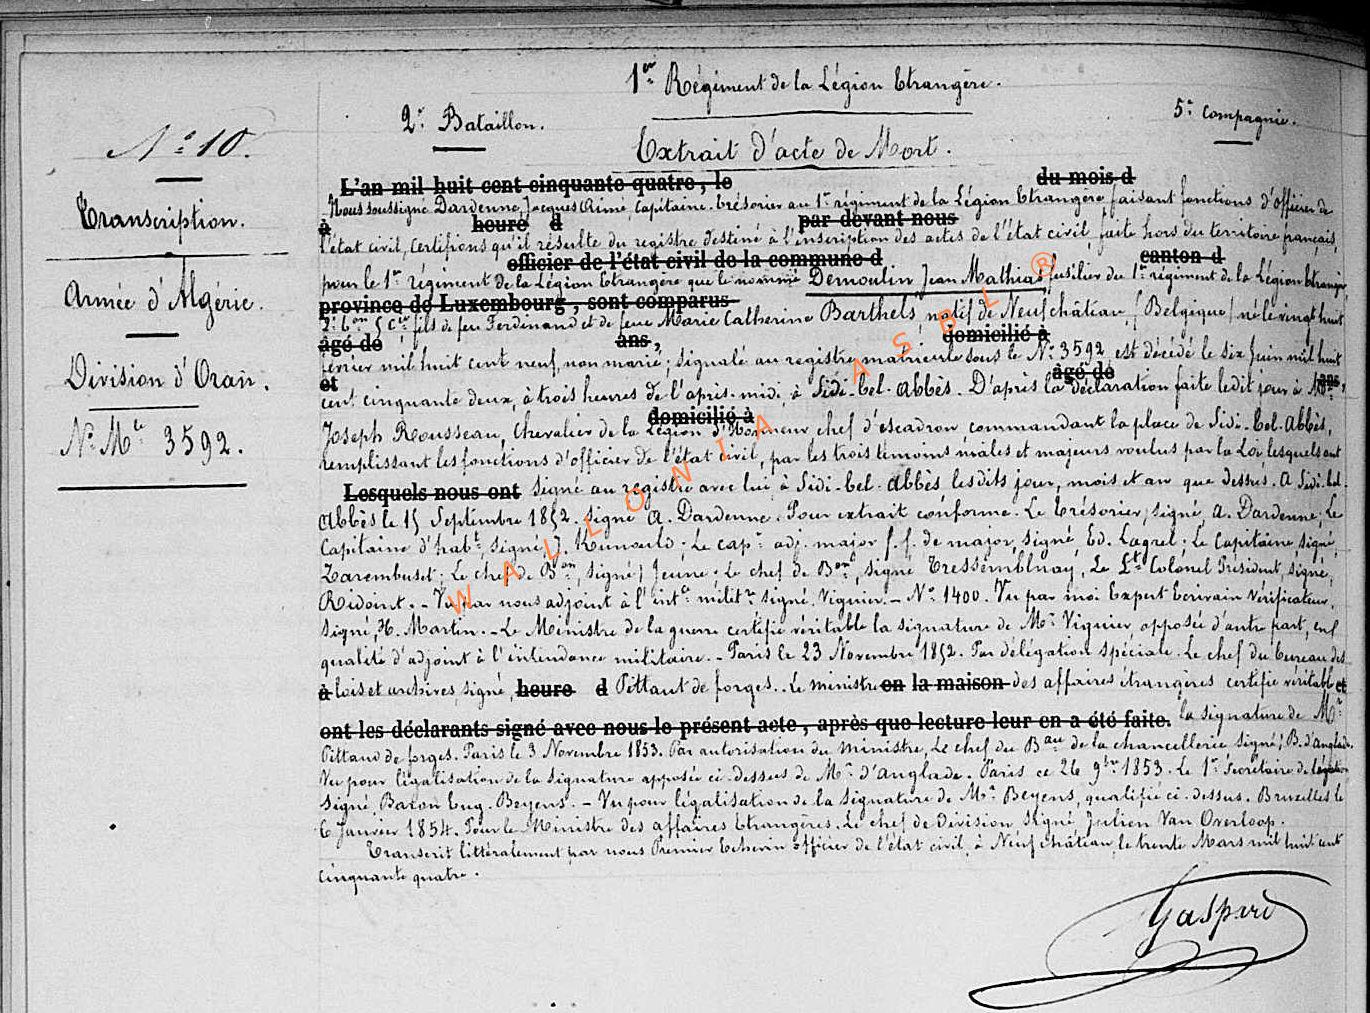 1er Régiment de la Légion Etrangère.
2e Bataillon.
5e Compagnie.
Extrait d'acte de Mort.
No 10.
Transcription.
Armée d'Algérie.
Division d'Oran.
No Mle 3592.
L'an mil huit cent cinquante-quatre, le du mois d
Nous soussigné Dardenne, Jacques Aimé Capitaine-trésorier au 1er régiment de la Légion Etrangère faisant fonctions d'officier de
à heure d par-devant nous
l'état civil, certifions qu'il résulte du registre destiné à l'inscription des actes de l'état civil, faite hors du territoire français,
officier de l'état civil de la commune d canton d
pour le 1er régiment de la Légion Etrangère que le nommé Demoulin Jean Mathias fusilier du 1er régiment de la Légion Etrangère,
province de Luxembourg, sont comparus
2e bon 5e Cie fils de feu Ferdinand et de feue Marie Catherine Barthels, natif de Neufchâteau, (Belgique) né le vingt huit
âgé de ans, domicilié à
février mil huit cent neuf, non marié; signalé au registre matricule sous le No 3592, est décédé le six Juin mil huit
et âgé de ans,
cent cinquante deux, à trois heures de l'après-midi, à Sidi-bel-abbès. D'après la déclaration faite ledit jour à Mr
domicilié à
Joseph Rousseau, Chevalier de la Légion d'Honneur chef d'escadron commandant la place de Sidi-bel-abbès,
remplissant les fonctions d'officier de l'état civil, par les trois témoins mâles et majeurs voulus par la Loi lesquels ont
Lesquels nous ont signé au registre avec lui à Sidi-bel-abbès lesdits jour, mois et an que dessus. A Sidi-bel-
abbès le 15 Septembre 1852. signé A. Dardenne. Pour extrait conforme. Le Trésorier, signé A. Dardenne, Le
Capitaine d'habt, signé, J. ; Le capne adj. major f.f. de major, signé, Ed. Lagrel; Le Capitaine signé,
; Le chef de Bon, signé, Jeune; Le chef de Bon, signé , Le Lt Colonel Président, signé,
Ridoint. - Vu par nous adjoint à l'intce militre signé Vignier. - No 1400. Vu par moi Expert Ecrivain Vérificateur,
signé, H. Martin. - Le Ministre de la guerre certifie véritable la signature de Mr Vignier apposée d'autre part, en
qualité d'adjoint à l'intendance militaire. - Paris le 23 Novembre 1852. Par délégation spéciale. Le chef du bureau des
à lois et archives, signé, heure d Pittaut de forges. Le ministre en la maison des affaires étrangères certifie véritable et
ont les déclarants signé avec nous le présent acte, après que lecture leur en a été faite. la signature de Mr
Pittaud de forges. Paris le 3 Novembre 1853. Par autorisation du ministre, Le chef du Bau de la chancellerie signé, B. d'anglade.
Vu pour légalisation de la signature apposée ci-dessus de Mr d'anglade. Paris ce 26 9bre 1853. Le 1er Secrétaire de légation
signé, Baron Eug. Beyens. - Vu pour légalisation de la signature de Mr Beyens, qualifié ci-dessus. Bruxelles le
6 Janvier 1854. Pour le Ministre des affaires Etrangères. Le chef de Division signé Julien Van Overloop.
Transcrit littéralement par nous Premier Echevin officier de l'état civil, à Neufchâteau, le trente Mars mil huit cent
cinquante quatre.
Gaspard
WALLONIA ASBL ®